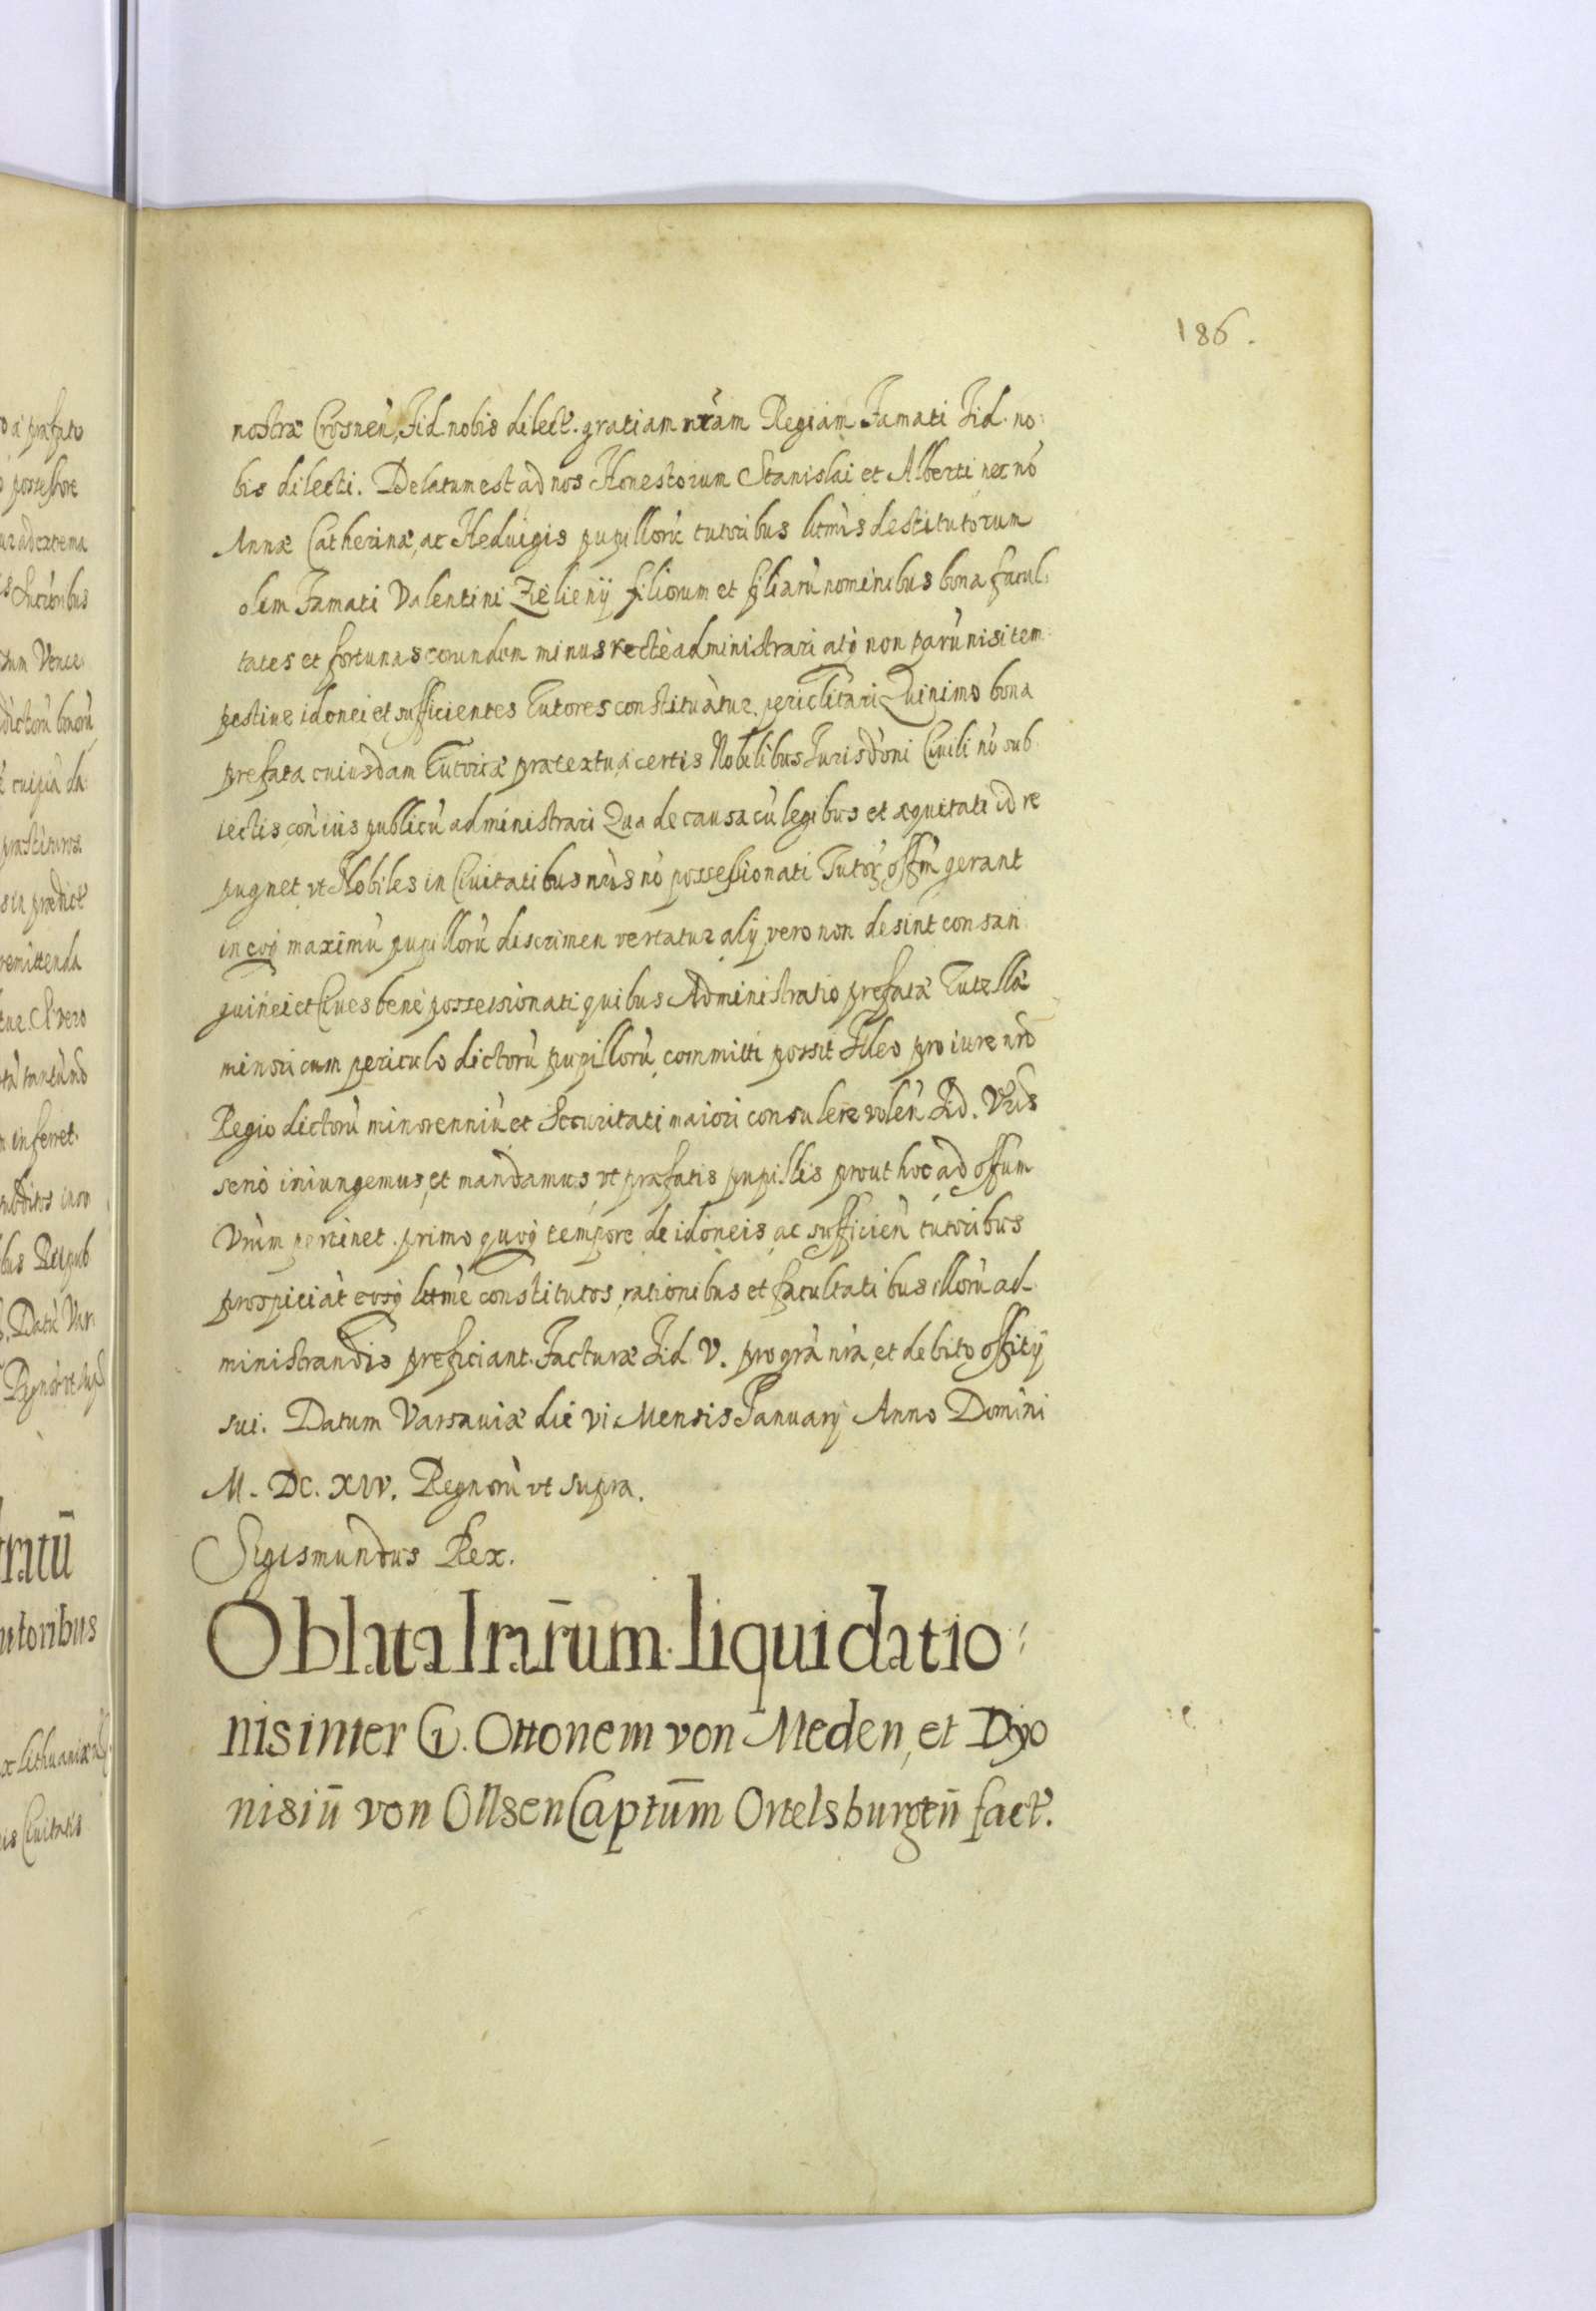 186.
nostræ Crosneñ, Fid. nobis dilect. gratiam nr̃am Regiam Famati Fid. no:
bis dilecti. Delatum est ad nos Honestorum Stanislai et Alberti, nec nõ
Annæ Catherinæ, ac Heduigis pupillorũ tutoribus ltimis destitutorum
olim Famati Valentini Zielienij filiorum et filiarũ nominibus bona facul:
tates et fortunas eorundem minus rectè administrari atq̃ non parũ nisi tem:
pestiue idonei et sufficientes Tutores constituãtur, periclitari Quinimo bona
prefata cuiusdam Tutoriæ prætextu, à certis Nobilibus Jurisdõni Ciuili nõ sub:
iectis, con̈ ius publicũ administrari Qua de causa cũ legibus et æquitati id re
pugnet, vt Nobiles in Ciuitatibus nr̃is nõ possessionati Tutor̃ offm̃ gerant
in eoq̃ maximũ pupillorũ discrimen vertatur, alij vero non desint consan
guinei et Ciues bene possessionati quibus Administratio prefatæ Tutellæ
minori cum periculo dictorũ pupillorũ, committi possit Ideo pro iure nr̃o
Regio dictorũ minorenniũ et Securitati maiori consulere voleñ Fid. Vr̃is
serio iniungemus, et mandamus, vt præfatis pupillis prout hoc ad offum
Vrũm pertinet. primo quoq̃ tempore de idoneis, ac sufficieñ tutoribus
prospiciãt eosq̃ ltimè constitutos, rationibus et facultatibus illorũ ad-
ministrandis preficiant. Facturæ Fid. V. pro grã nr̃a, et debito offitij
sui. Datum Varsauiæ die vi Mensis Januarij Anno Domini
M. DC. XIV. Regnorũ vt supra.
Sigismundus Rex.
Oblata lrãrum liquidatio:
nis inter G. Ottonem von Meden, et Dyo
nisiũ von Ollsen Captũm Ortelsburgeñ fact.